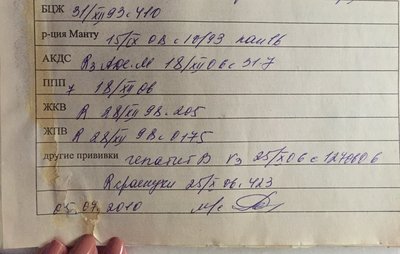 БЦЖ 31/XII 93 с 410
р-ция Манту 15/IX 08 с 10/93
АКДС R3 АДС.М 18/XII 06 с 317
ППП 7 18/XII 06
ЖКВ R 28/XII 98. 205
ЖПВ R 28/XII 98 с 0175
другие прививки гепатит В V3 25/X 06 с
R краснухи 25/X 06. 423
05. 04. 2010 м/с